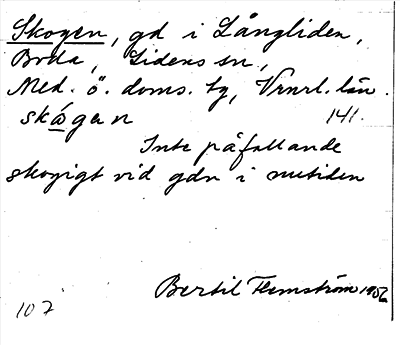 Skogen, gd i Långliden,
Boda, Lidens sn,
Med. ö. doms. tg, Vrnrl. län.
skågen 141.
Inte påfallande
skogigt vid gdn i nutiden
Bertil Flemström 1956
107